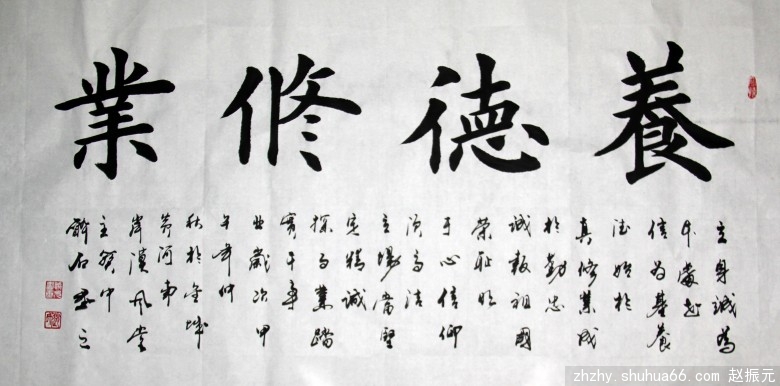 養德修業
立身誠為
本處世
信為基養
德始於
真修業成
於勤忠
誠報祖國
榮耻明
于心信仰
須高潔
立場當堅
定精誠
業踏
實干事
业歲次甲
午年仲
秋於金城
黄河南
岸漠风堂
主癸中
醉石書之
zhzhy.shuhua66.com 赵振元